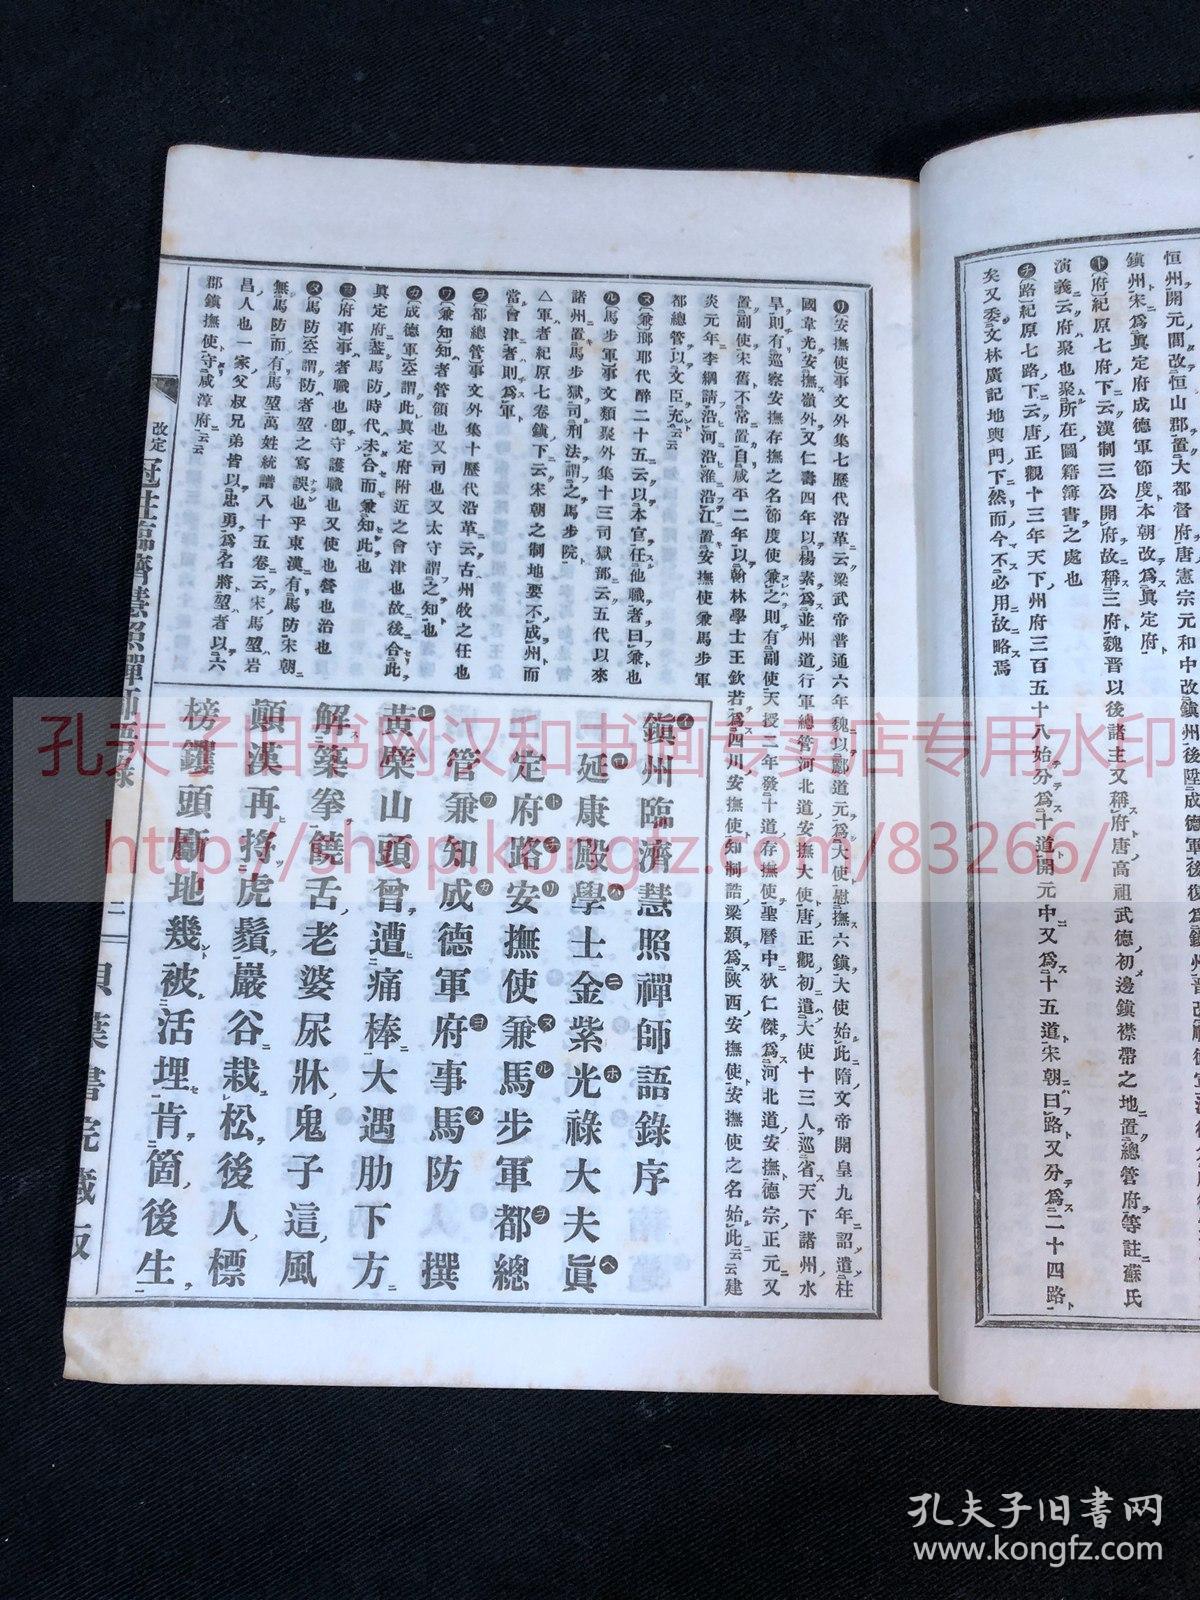 恒州開元間改恒山郡置大都督府唐憲宗元和中改鎭州後陞成德軍後復爲鎭州
鎭州宋爲眞定府成德軍節度本朝改爲眞定府
府紀原七府下云漢制三公開府故稱三府魏晋以後諸主又稱府唐高祖武德初邊鎭襟帶之地置總管府等註蘇氏
演義云府聚也聚所在圖籍簿書之處也
路紀原七路下云唐正觀十三年天下州府三百五十八始分爲十道開元中又爲十五道宋朝曰路又分爲二十四路
矣又委文林廣記地輿門下然而今不必用故略焉
安撫使事文外集七歷代沿革云梁武帝普通六年魏以酈道元爲大使慰撫六鎭大使始此隋文帝開皇九年詔遣柱
國韋光安撫嶺外又仁壽四年以楊素爲並州道行軍總管河北道安撫大使唐正觀初遣大使十三人巡省天下諸州水
旱則有巡察安撫存撫之名節度使兼之則有副使天授二年發十道存撫使聖曆中狄仁傑爲河北道安撫德宗正元又
置副使宋舊不常置自咸平二年以翰林學士王欽若爲四川安撫使知制誥梁顥爲陝西安撫使安撫使之名始此云云建
炎元年李綱請沿河沿淮沿江置安撫使兼馬步軍
都總管以文臣充云云
兼瑯耶代醉二十五云以本官任他職者曰兼也
馬步軍事文類聚外集十三司獄部云五代以來
諸州置馬步獄司刑法謂之馬步院
△軍者紀原七卷鎭下云宋朝之制地要不成州而
當會津者則爲軍
都總管事文外集十歷代沿革云古州牧之任也
兼知知者管領也又司也又太守謂之知也
成德軍至謂此眞定府附近之會津也故後合此
眞定府蓋馬防時代未合而兼知此也
府事事者職也卽守護職也又使也營也治也
馬防至謂防者堃之寫誤也乎東漢有馬防宋朝
無馬防而有馬堃萬姓統譜八十五卷云宋馬堃岩
昌人也一家父叔兄弟皆以忠勇爲名將堃者以六
郡鎭撫使守咸淳府云云
鎭州臨濟慧照禪師語錄序
延康殿學士金紫光祿大夫眞
定府路安撫使兼馬步軍都總
管兼知成德軍府事馬防撰
黃檗山頭曾遭痛棒大遇肋下方
解築拳饒舌老婆尿牀鬼子這風
顚漢再捋虎鬚巖谷栽松後人標
榜钁頭斸地幾被活埋肯箇後生
改定冠註臨濟慧照禪師語錄
二
貝葉書院藏版
孔夫子旧书网汉和书画专卖店专用水印
http://shop.kongfz.com/83266/
孔夫子旧书网
www.kongfz.com